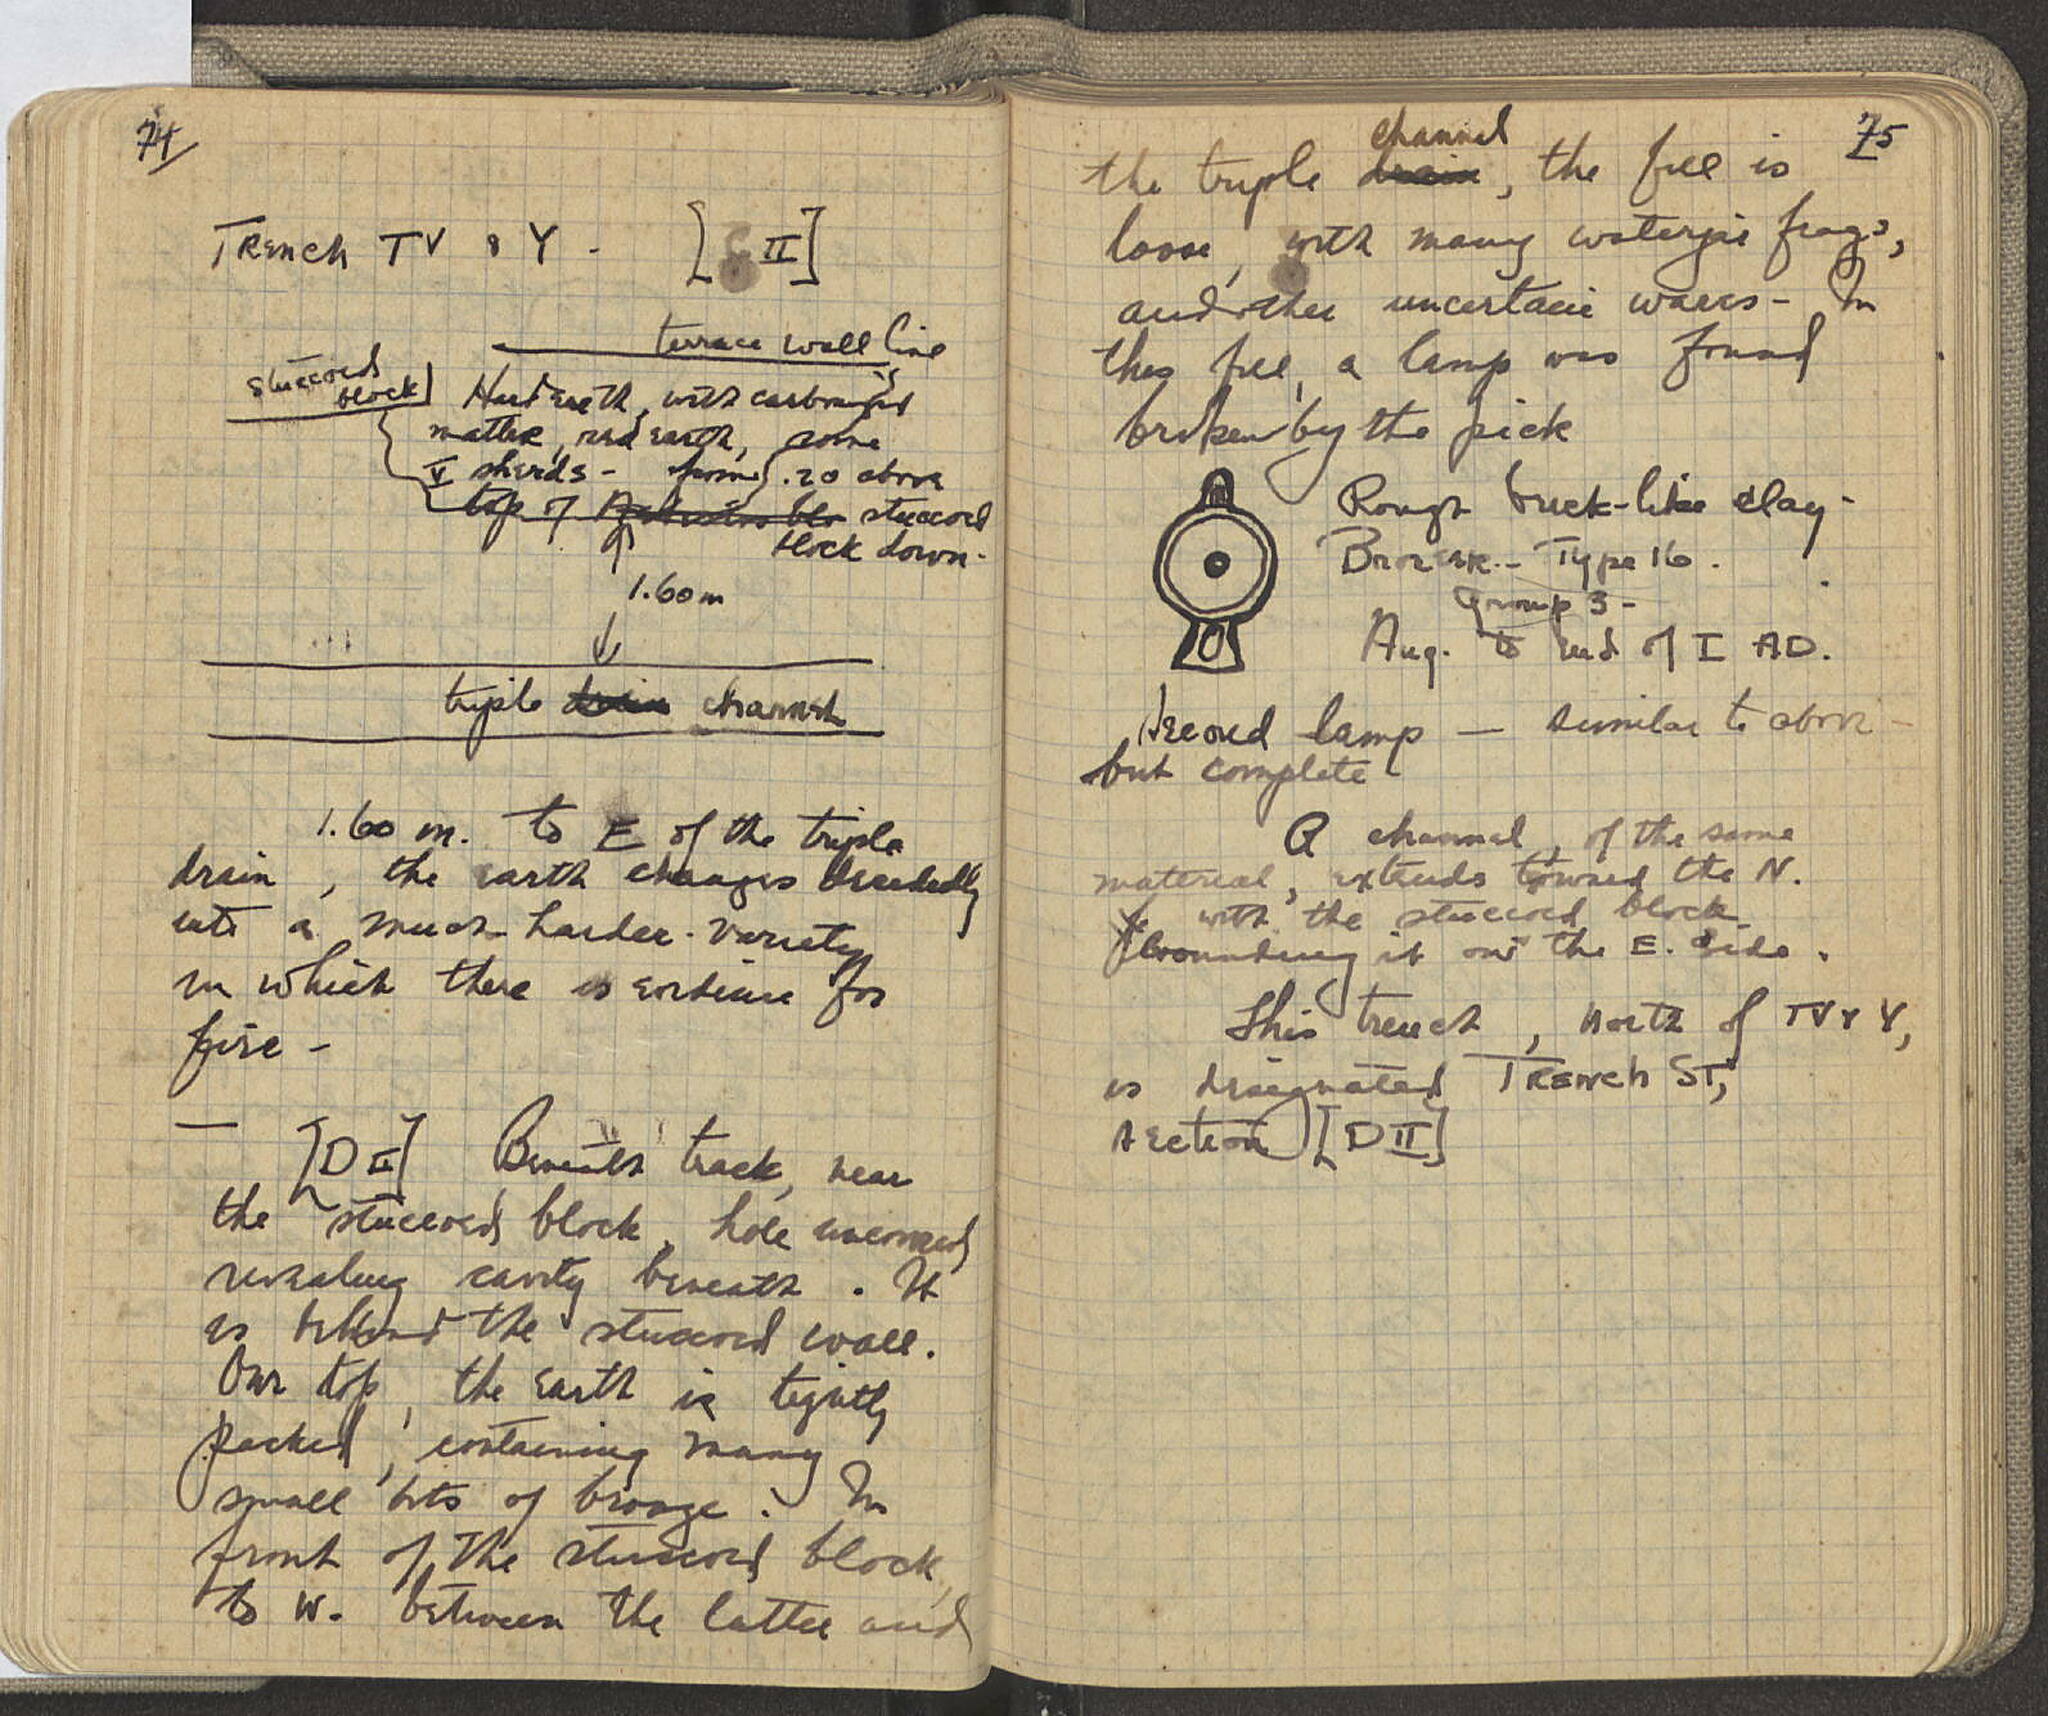 74
Trench TV & Y - [C II]
terrace wall line
stuccoed
block
Hard earth, with carbonized
matter, red earth, some
V sherds - from .20 above
top of stuccoed
block down.
1.60 m
triple drain channel
1.60 m. to E of the triple
drain, the earth changes decidedly
into a much harder variety
in which there is evidence for
fire -
[D II] Beneath track, near
the stuccoed block, hole uncovered
revealing cavity beneath. It
is behind the stuccoed wall.
On top, the earth is tightly
packed, containing many
small bits of bronze. In
front of the stuccoed block,
to W. between the latter and
75
channel
the triple drain, the fill is
loose, with many waterpipe frags,
and other uncertain wares - In
this fill, a lamp was found
broken by the pick
Rough brick-like clay -
Broneer - Type 16.
Group 3 -
Aug. to end of I AD.
Second lamp - similar to above -
but complete
A channel, of the same
material, extends toward the N.
with the stuccoed block
bounding it on the E. side.
This trench, north of TV & Y,
is designated Trench ST,
section [D II]